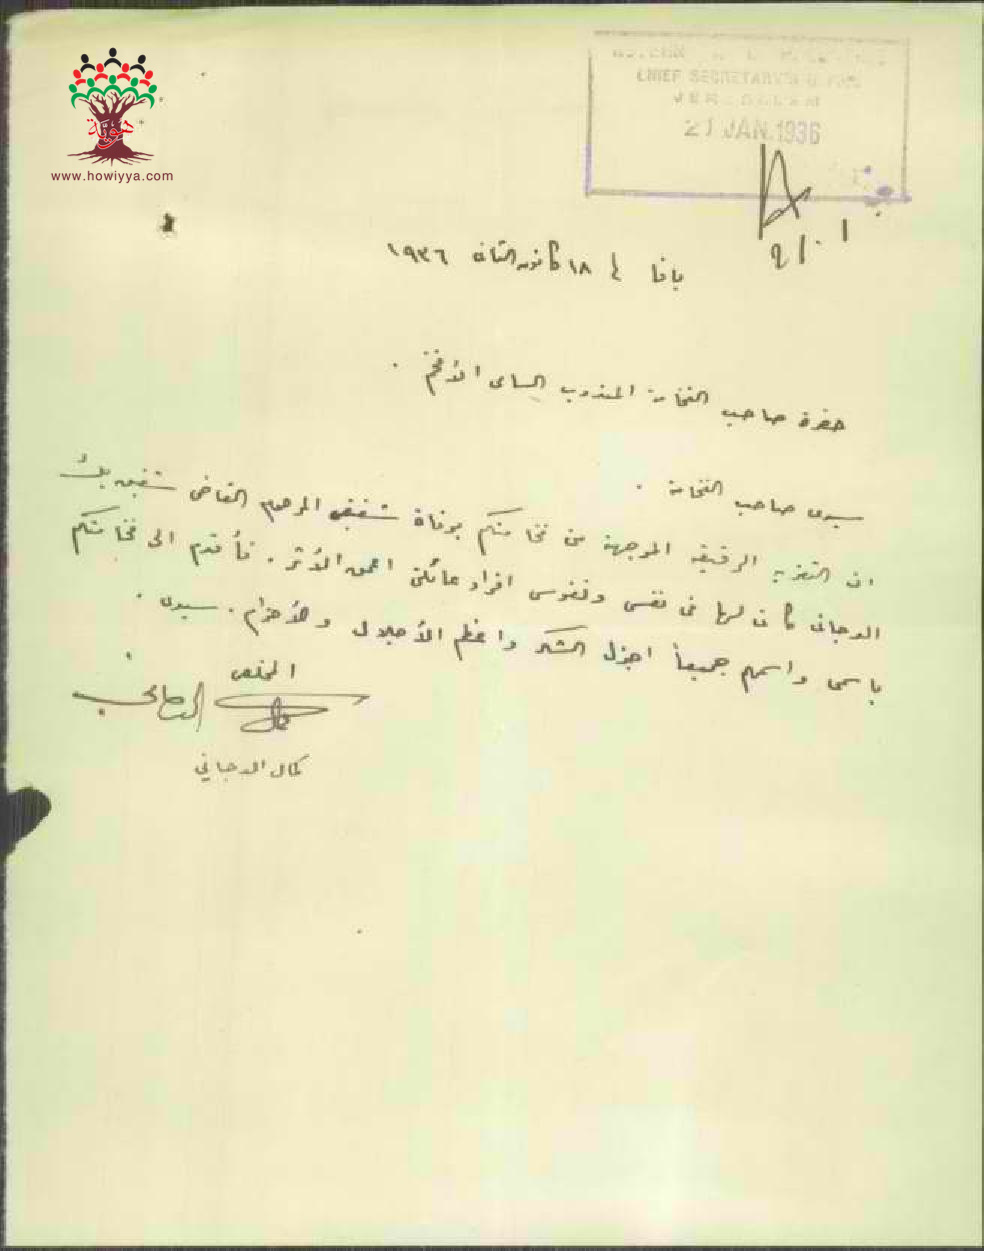 هوية
www.howiyya.com
CHIEF SECRETARY'S OFFICE
JERUSALEM
21 JAN. 1936
21/1
يافا في ١٨ كانون الثاني ١٩٣٦
حضرة صاحب الفخامة المندوب السامي الأفخم .
سيدي صاحب الفخامة .
ان التعزية الرقيقة الموجهة من فخامتكم بوفاة شقيقي المرحوم القاضي شفيق بك
الدجاني كان لها في نفسي ونفوس افراد عائلتي اعمق الأثر . فأقدم الى فخامتكم
باسمي واسمهم جميعاً اجزل الشكر واعظم الأجلال والأحترام . سيدي .
المخلص
كمال الدجاني
كمال الدجاني